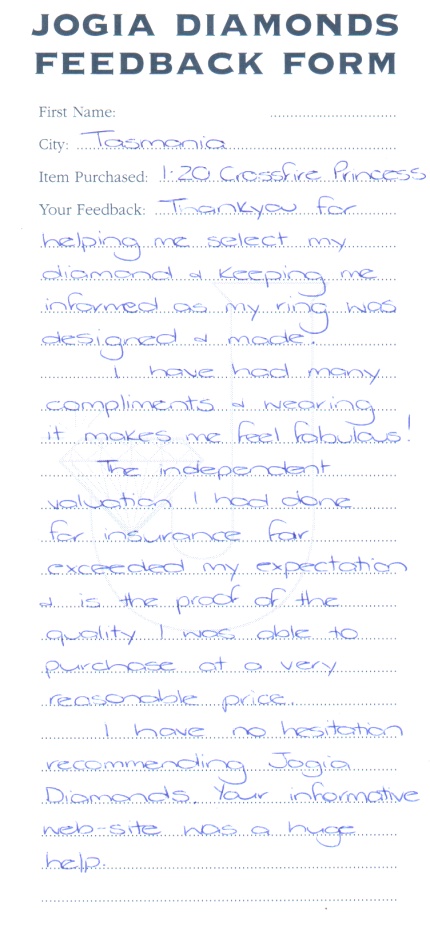 JOGIA DIAMONDS
FEEDBACK FORM
First Name:
City: Tasmania
Item Purchased: 1.20 Crossfire Princess
Your Feedback: Thankyou for
helping me select my
diamond & keeping me
informed as my ring was
designed & made.
I have had many
compliments & wearing
it makes me feel fabulous!
The independent
valuation I had done
for insurance far
exceeded my expectation
& is the proof of the
quality I was able to
purchase at a very
reasonable price.
I have no hesitation
recommending Jogia
Diamonds. Your informative
web-site was a huge
help.